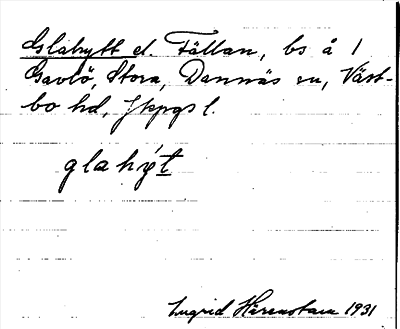 Glahytt el. Fällan, bs å 1
Gavlö, Stora, Dannäs sn, Väst-
bo hd, Jkpgs l.
glahýt
Ingrid 1931